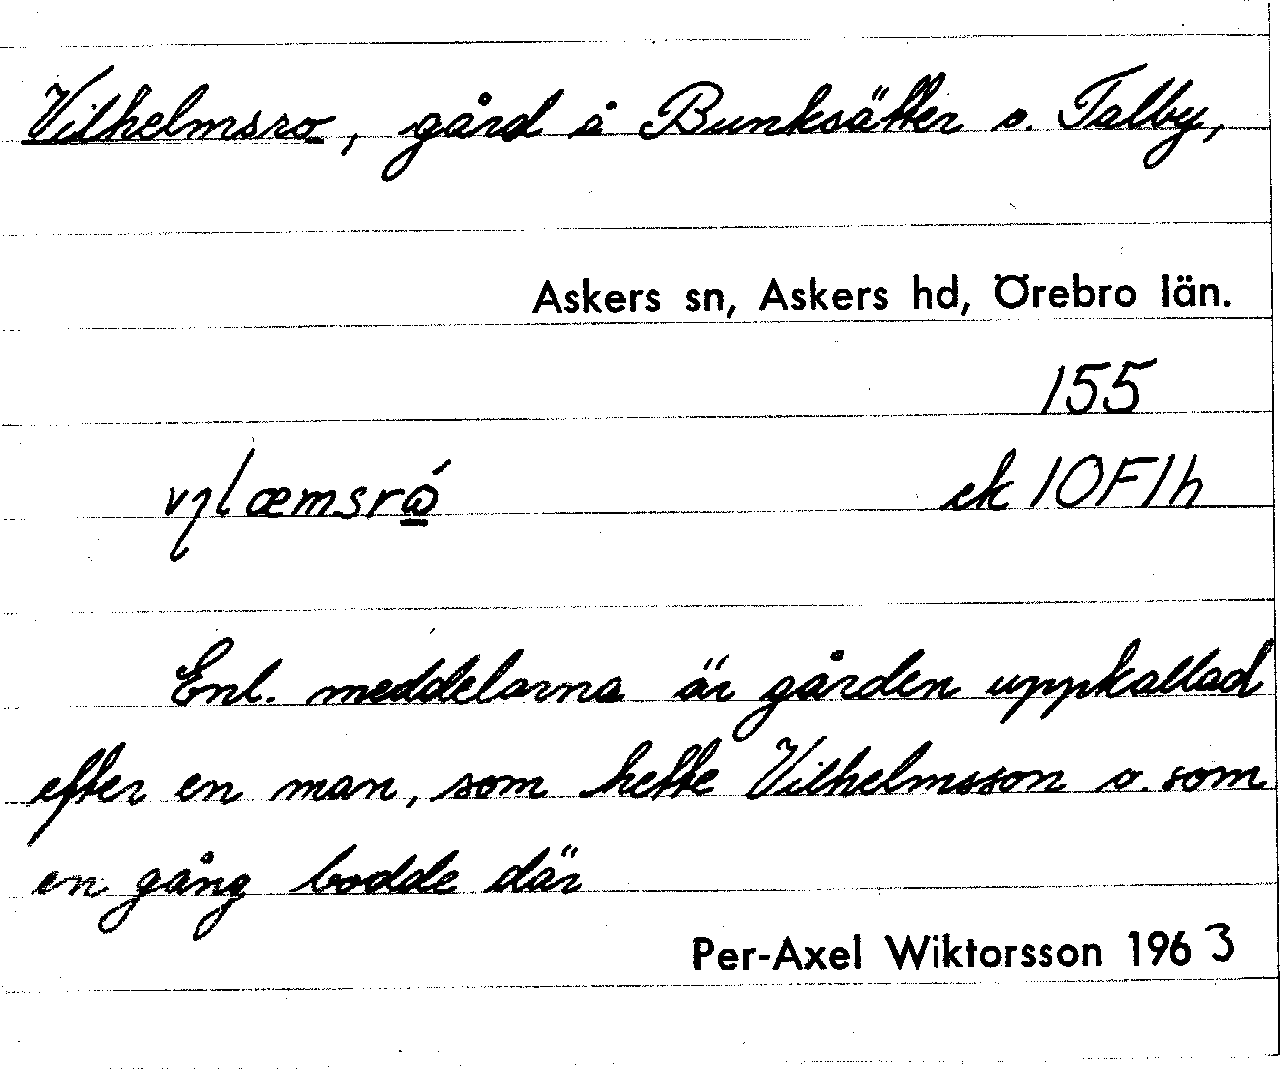 Vilhelmsro, gård å Bunksätter o. Talby,
Askers sn, Askers hd, Örebro län.
155
ek 10F1h
Enl. meddelarna är gården uppkallad
efter en man, som hette Vilhelmsson o. som
en gång bodde där
Per-Axel Wiktorsson 1963